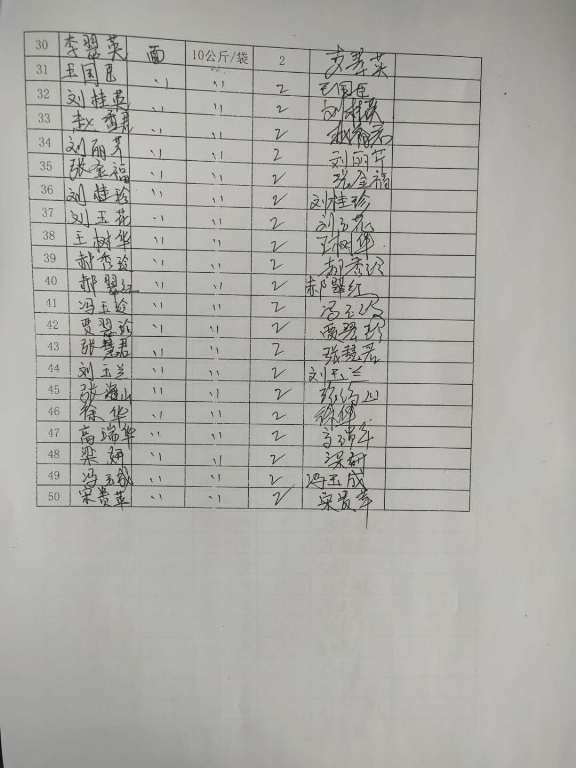 30 李翠英 面 10公斤/袋 2 李翠英
31 王国民 〃 〃 2 王国民
32 刘桂英 〃 〃 2 刘桂英
33 赵香君 〃 〃 2
34 刘丽芳 〃 〃 2 刘丽芳
35 张金福 〃 〃 2 张金福
36 刘桂珍 〃 〃 2 刘桂珍
37 刘玉花 〃 〃 2 刘玉花
38 王树华 〃 〃 2 王树华
39 郝秀玲 〃 〃 2 郝秀玲
40 郝翠红 〃 〃 2 郝翠红
41 冯玉玲 〃 〃 2 冯玉玲
42 贾翠珍 〃 〃 2 贾翠珍
43 张慧君 〃 〃 2 张慧君
44 刘玉兰 〃 〃 2 刘玉兰
45 张海山 〃 〃 2 张海山
46 徐华 〃 〃 2 徐华
47 高瑞华 〃 〃 2 高瑞华
48 梁妍 〃 〃 2 梁妍
49 冯玉成 〃 〃 2 冯玉成
50 宋贵革 〃 〃 2 宋贵革